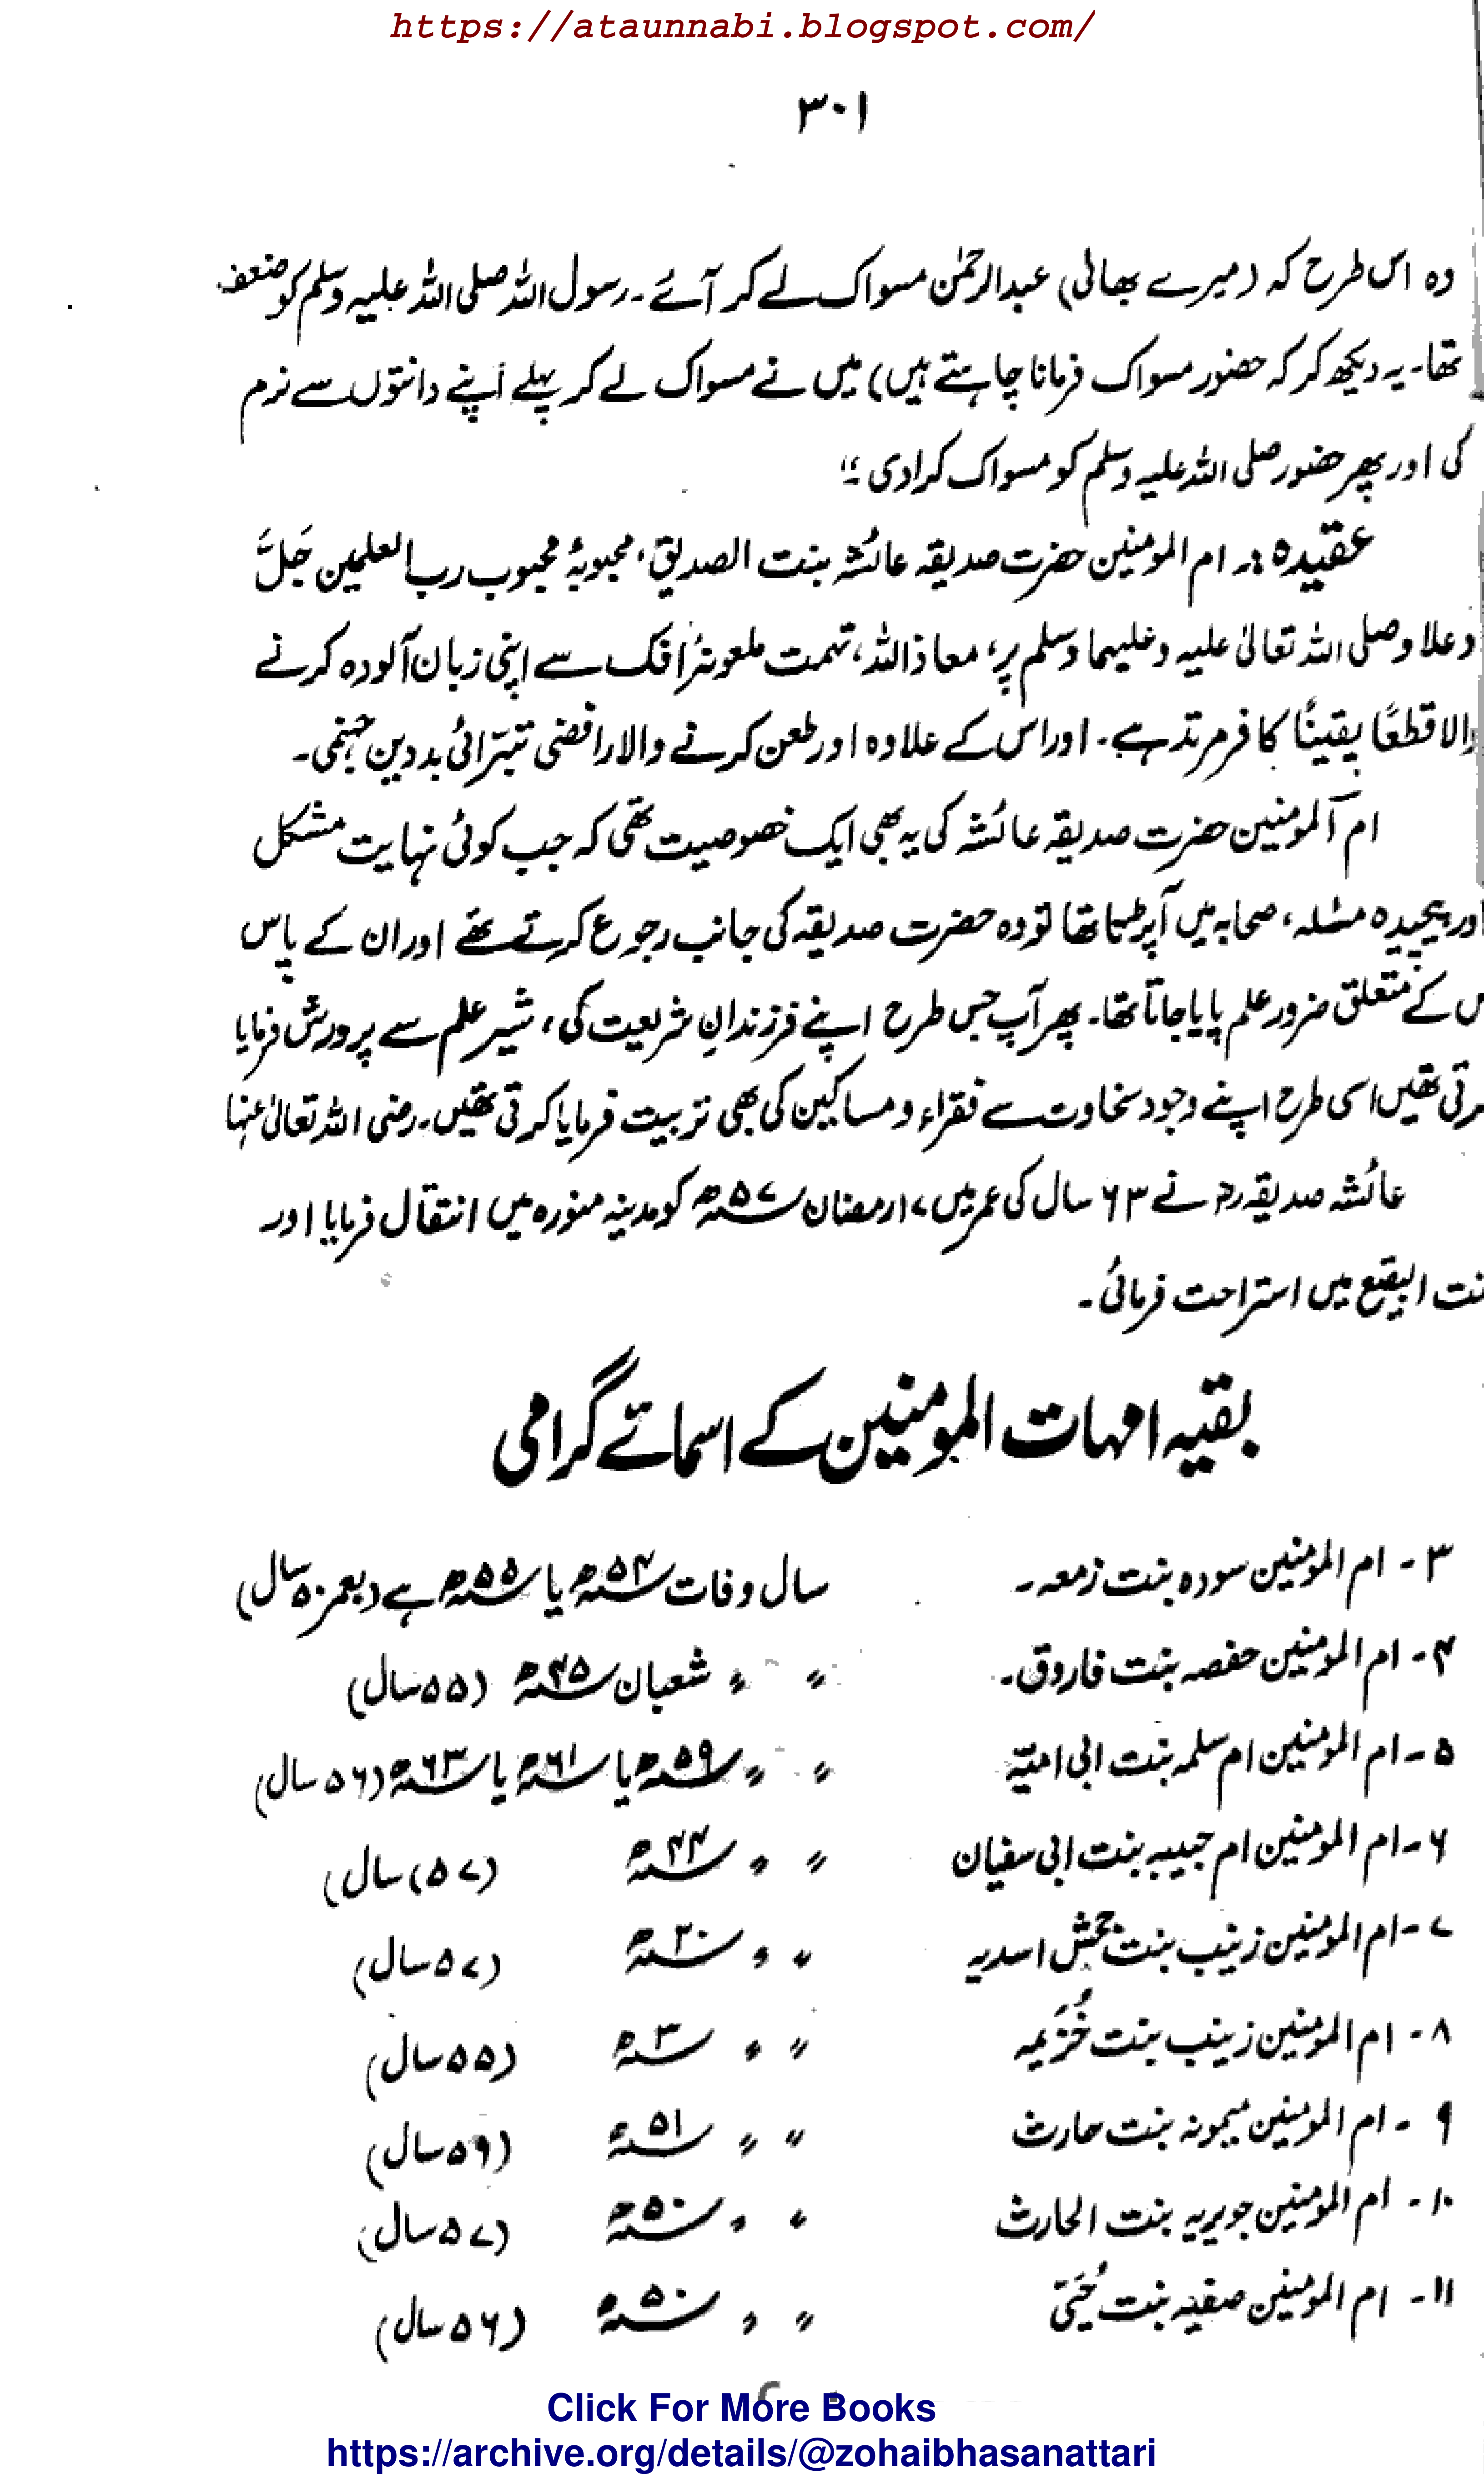 https://ataunnabi.blogspot.com/
۳۰۱
وہ اس طرح کہ (میرے بھائی) عبدالرحمٰن مسواک لے کر آئے۔ رسول اللہ صلی اللہ علیہ وسلم کو ضعف
تھا۔ یہ دیکھ کر کہ حضور مسواک فرمانا چاہتے ہیں) میں نے مسواک لے کر پہلے اپنے دانتوں سے نرم
کی اور پھر حضور صلی اللہ علیہ وسلم کو مسواک کرا دی ؛"
عقیدہ :۔ ام المومنین حضرت صدیقہ عائشہ بنت الصدیق، محبوبۂ محبوب رب العلمین جَلَّ
وعلا وصلی اللہ تعالیٰ علیہ وعلیہا وسلم پر، معاذ اللہ، تہمت ملعونۂ افک سے اپنی زبان آلودہ کرنے
والا قطعًا یقینًا کافر مرتد ہے۔ اور اس کے علاوہ اور طعن کرنے والا رافضی تبرّائی بد دین جہنمی۔
ام المومنین حضرت صدیقہ عائشہ کی یہ بھی ایک خصوصیت تھی کہ جب کوئی نہایت مشکل
اور پیچیدہ مسئلہ، صحابہ میں آپڑتا تھا تو وہ حضرت صدیقہ کی جانب رجوع کرتے تھے اور ان کے پاس
س کے متعلق ضرور علم پایا جاتا تھا۔ پھر آپ جس طرح اپنے فرزندانِ شریعت کی، شیر علم سے پرورش فرمایا
رتی تھیں اسی طرح اپنے وجود سخاوت سے فقراء و مساکین کی بھی تربیت فرمایا کرتی تھیں۔ رضی اللہ تعالیٰ عنہا
عائشہ صدیقہ رض نے ۶۳ سال کی عمر میں ۱۷ رمضان ۵۷ھ کو مدینہ منورہ میں انتقال فرمایا اور
نت البقیع میں استراحت فرمائی۔
بقیہ امہات المومنین کے اسمائے گرامی
۳ - ام المومنین سودہ بنت زمعہ۔ سال وفات ۵۴ھ یا ۵۵ھ ہے (بعمر ۵۰ سال)
۴ - ام المومنین حفصہ بنت فاروق۔ " " شعبان ۴۵ھ (۵۵ سال)
۵ - ام المومنین ام سلمہ بنت ابی امیّہ " " ۵۹ھ یا ۶۱ھ یا ۶۳ھ (۵۶ سال)
۶ - ام المومنین ام حبیبہ بنت ابی سفیان " " ۴۴ھ (۵۷) سال)
۷ - ام المومنین زینب بنت جحش اسدیہ " " ۲۰ھ (۵۷ سال)
۸ - ام المومنین زینب بنت خُزَیمہ " " ۳ھ (۵۵ سال)
۹ - ام المومنین میمونہ بنت حارث " " ۵۱ھ (۵۹ سال)
۱۰ - ام المومنین جویریہ بنت الحارث " " ۵۰ھ (۵۷ سال)
۱۱ - ام المومنین صفیہ بنت حُیَیّ " " ۵۰ھ (۵۶ سال)
Click For More Books
https://archive.org/details/@zohaibhasanattari